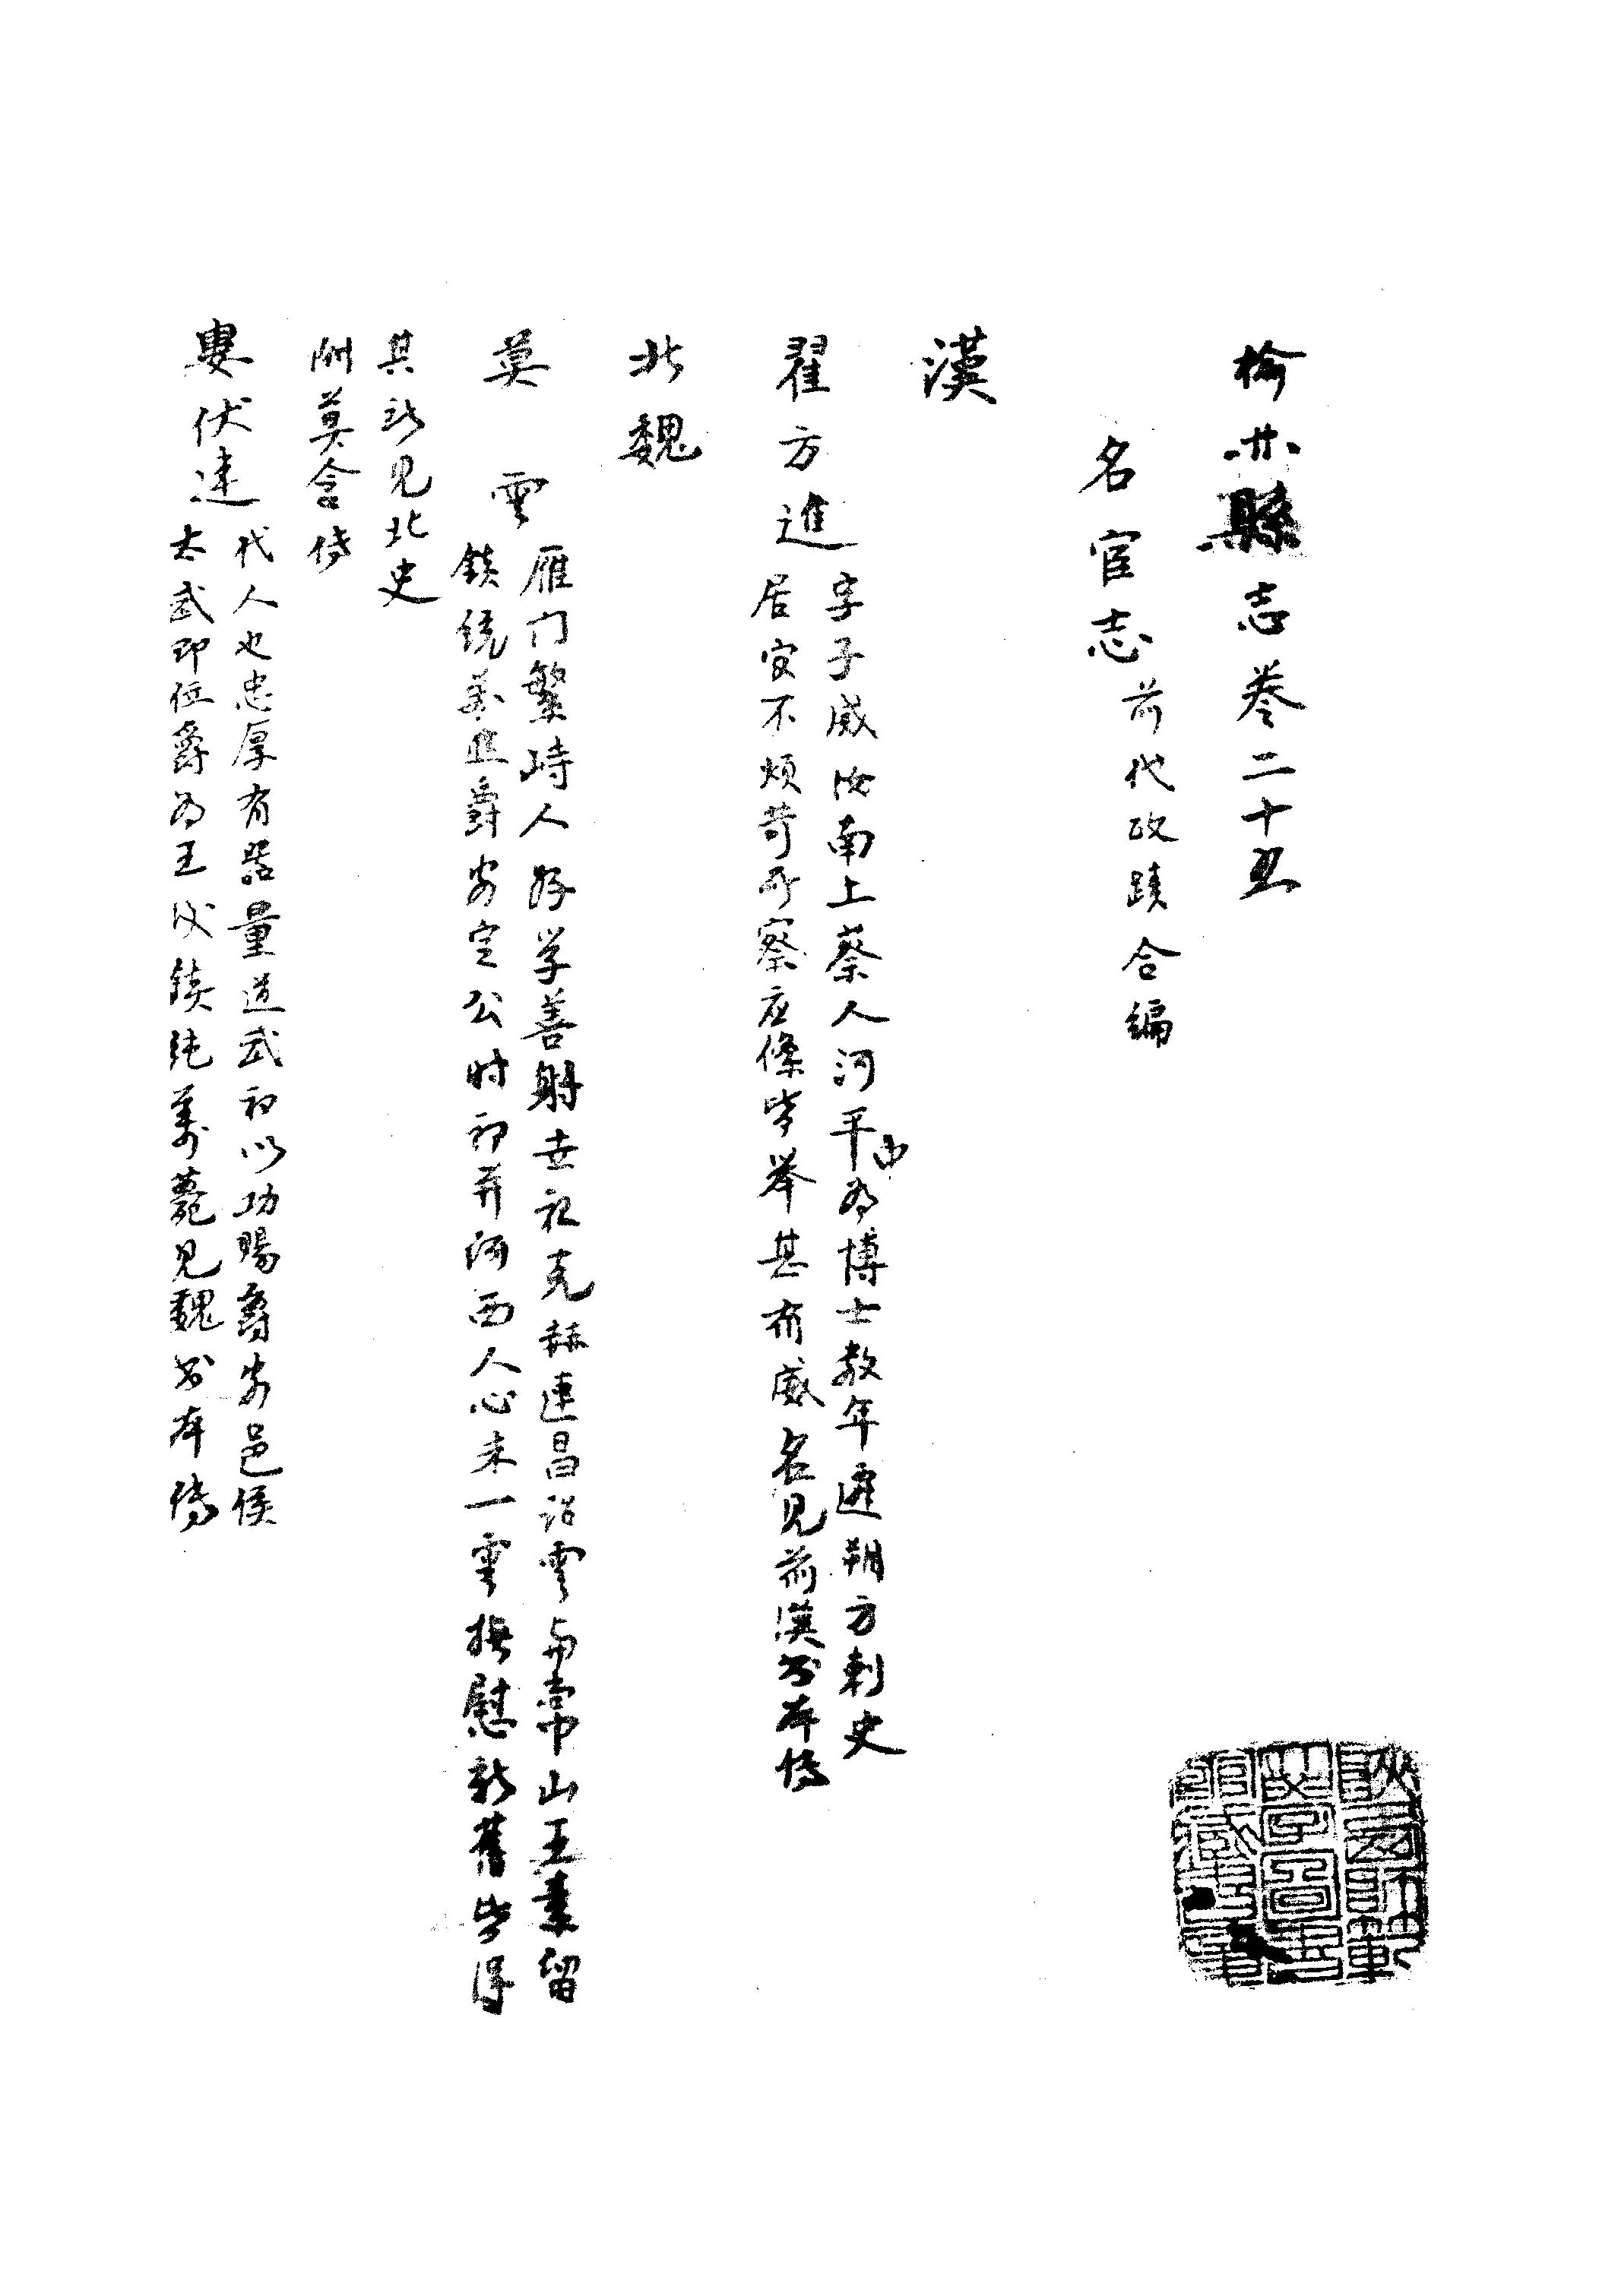 榆林縣志卷二十五
名宦志 前代政蹟合編
漢
翟方進 字子威汝南上蔡人河平中為博士数年遷朔方刺史
居官不烦苛所察应條皆举甚有威名見前漢书本传
北魏
莫雲 雁门繁峙人好学善射世祖克赫連昌诏雲与常山王素留
鎮統萬進爵安定公时初并河西人心未一雲撫慰新舊皆得
其所見北史
附莫含传
婁伏連 代人也忠厚有器量道武初以功賜爵安邑侯
太武即位爵为王後鎮統萬薨見魏书本传
陝西師範大學圖書館藏書章